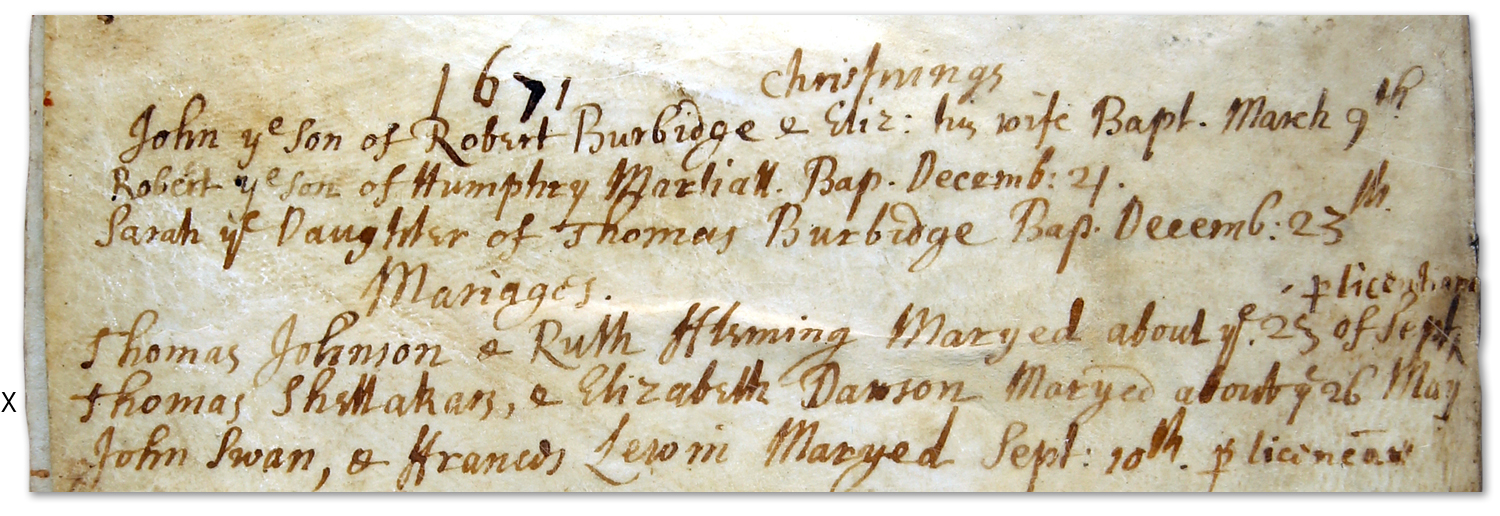 1671 Christnings
John yͤ Son of Robert Burbidge & Eliz: his wife Bapt. March 9th
Robert yͤ son of Humphry Marhall. Bap. Decemb: 21.
Sarah yͤ Daughter of Thomas Burbidge Bap. Decemb: 23th.
Mariages.
p licentiam
Thomas Johnson & Ruth ffleming Maryed about yͤ. 25 of Sept
X Thomas Shettakars, & Elizabeth Dawson Maryed about yͤ 26 May
John Swan, & ffrancis Lewin Maryed Sept: 10th. p